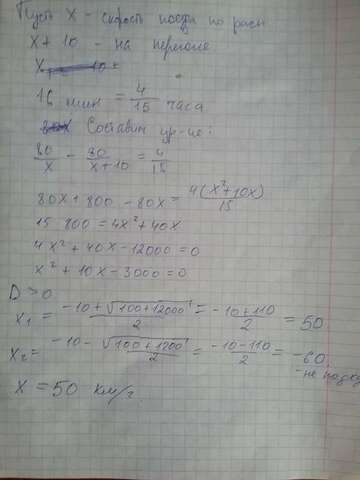 Пусть X - скорость поезда по расп
X + 10 - на перегоне
X
16 мин = 4/15 часа
Составим ур-ие:
80/x - 80/(x+10) = 4/15
80X + 800 - 80X = 4(X²+10X)/15
15 · 800 = 4X² + 40X
4X² + 40X - 12000 = 0
X² + 10X - 3000 = 0
D > 0
X₁ = (-10 + √(100 + 12000))/2 = (-10 + 110)/2 = 50
X₂ = (-10 - √(100 + 1200))/2 = (-10 - 110)/2 = -60
- не подх
X = 50 км/г.